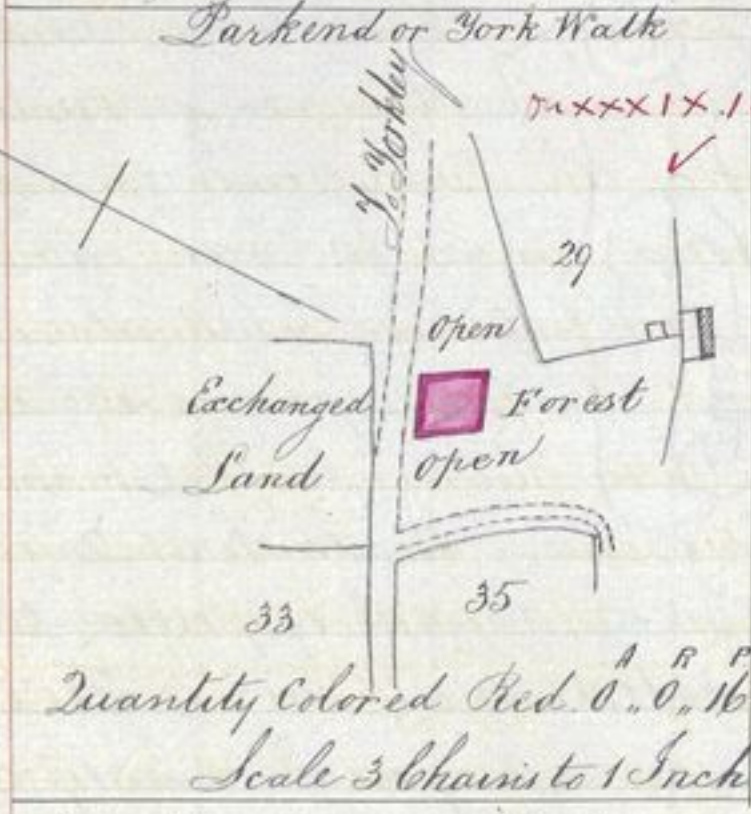 Parkend or York Walk
XXXIX.1
To Yorkley
29
Open
Exchanged
Forest
Land
open
33
35
A R P
Quantity Colored Red. 0,, 0,, 16
Scale 3 Chains to 1 Inch